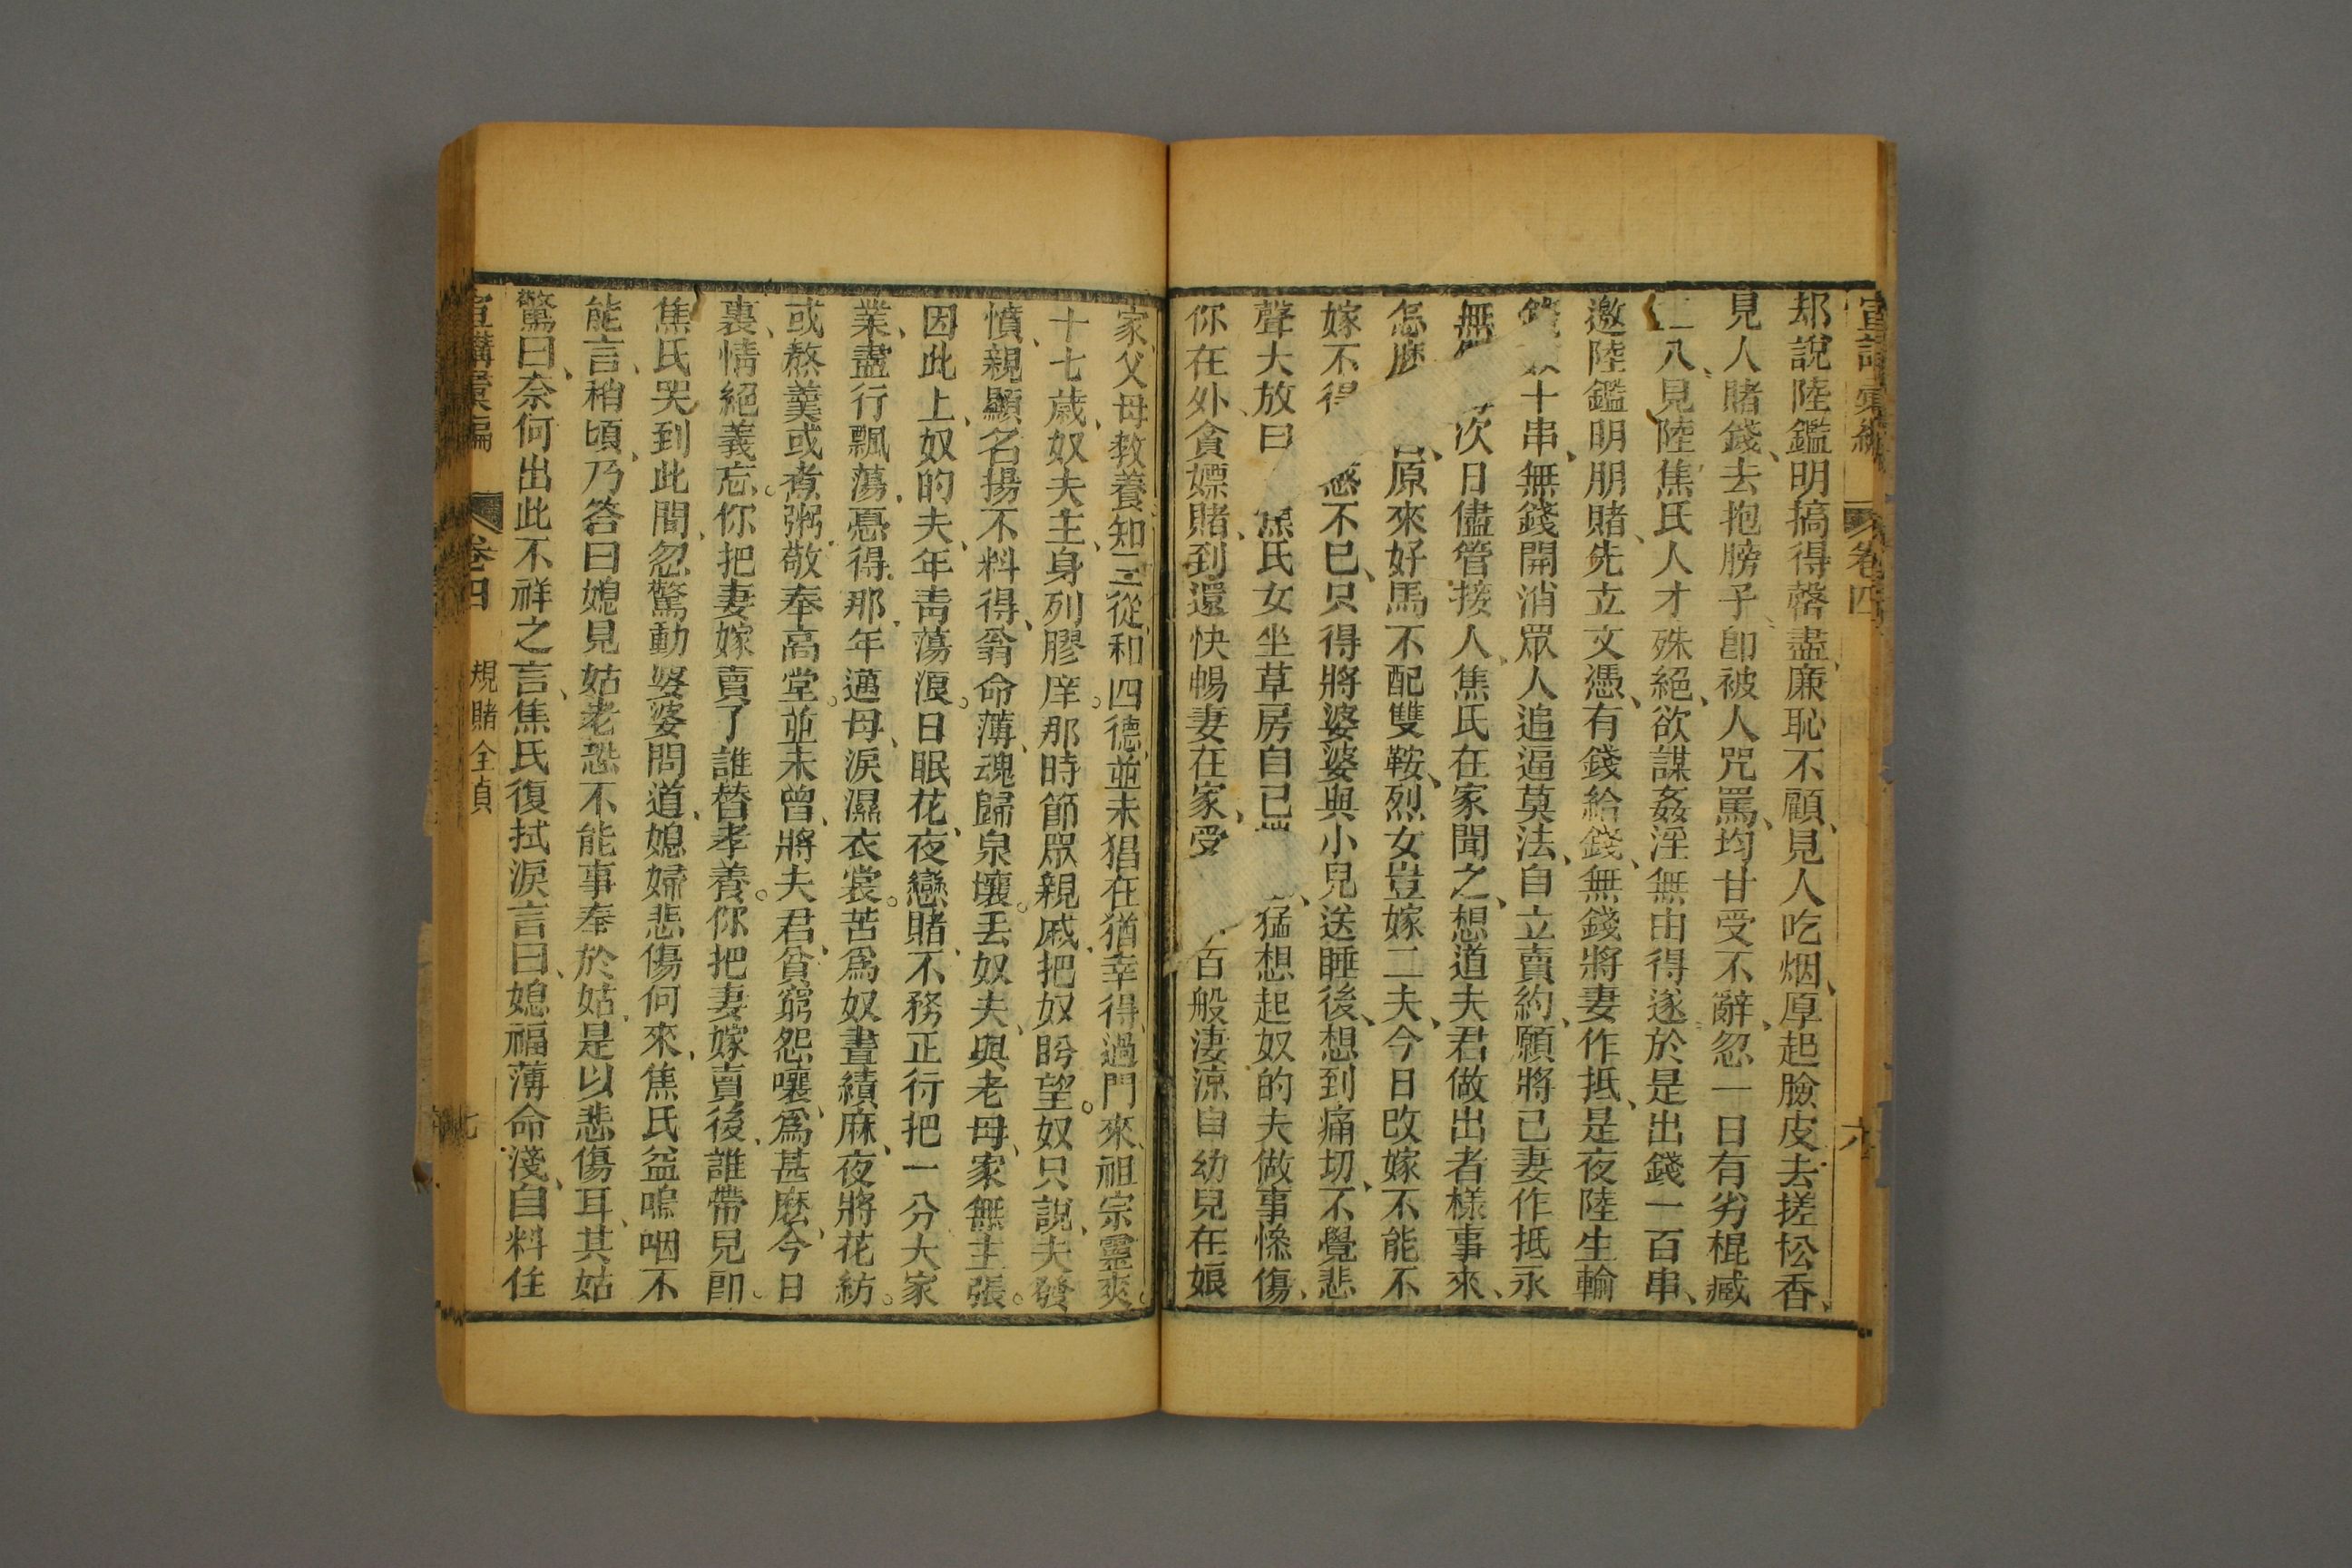 宣講彙編 卷四 六
却說陸鑑明搞得罄盡、廉恥不顧、見人吃烟、厚起臉皮去搓松香、
見人賭錢、去抱膀子、卽被人咒罵、均甘受不辭、忽一日有劣棍臧
二八、見陸焦氏人才殊絕、欲謀姦淫無由得遂、於是出錢一百串、
邀陸鑑明朋賭、先立文憑、有錢給錢、無錢將妻作抵、是夜陸生輸
錢 十串、無錢開消眾人追逼莫法、自立賣約、願將己妻作抵永
無 次日儘管接人、焦氏在家聞之、想道夫君做出者樣事來、
怎麽 原來好馬不配雙鞍、烈女豈嫁二夫、今日改嫁不能不
嫁不得 惑不已、只得將婆婆與小兒送睡後、想到痛切、不覺悲
聲大放曰 焦氏女坐草房自己 猛想起奴的夫做事慘傷、
你在外、貪嫖賭、到還快暢妻在家、受 百般淒涼自幼兒在娘
家、父母教養知三從、和四德、並未猖狂猶幸得、過門來、祖宗靈爽。
十七歲、奴夫主、身列膠庠。那時節眾親戚、把奴盻望。奴只說、夫發
憤、親顯名揚不料得、翁命薄、魂歸泉壤。丟奴夫、與老母、家無主張。
因此上、奴的夫、年靑蕩浪。日眠花、夜戀賭、不務正行把一分大家
業、盡行飄蕩、憂得、那年邁母、淚濕衣裳。苦爲奴晝績麻、夜將花紡。
或熬羹或煮粥、敬奉高堂。並未曾、將夫君、貧窮怨嚷、爲甚麽、今日
裏、情絕義忘。你把妻嫁賣了誰替孝養。你把妻嫁賣後、誰帶兒郎。
焦氏哭到此間、忽驚動婆婆問道、媳婦悲傷何來、焦氏益嗚咽不
能言、稍頃、乃答曰媳見姑老恐不能事奉於姑、是以悲傷耳、其姑
驚曰、奈何出此不祥之言、焦氏復拭淚言曰、媳福薄命淺、自料任
宣講彙編 卷四 規賭全貞 七